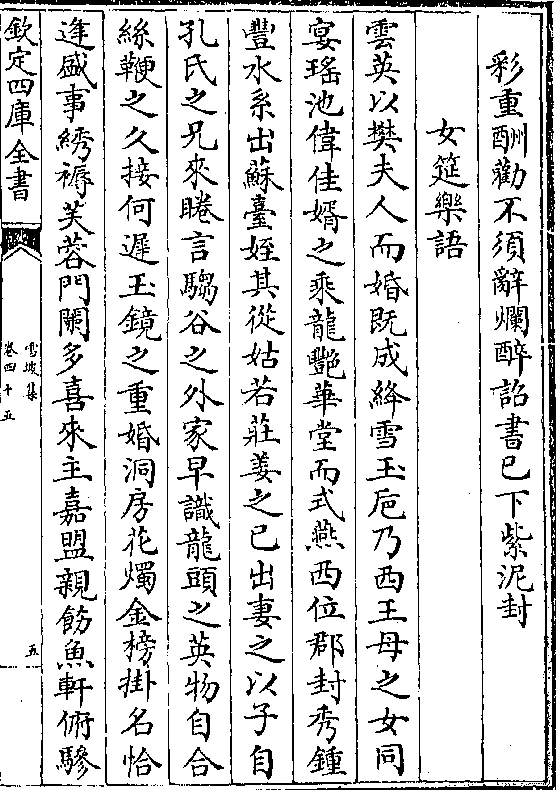 彩重酬勸不須辭爛醉詔書已下紫泥封
女筵樂語
雲英以樊夫人而婚既成絳雪玉巵乃西王母之女同
宴瑤池偉佳婿之乘龍艷華堂而式燕西位郡封秀鍾
豐水系出蘇臺姪其從姑若莊姜之已出妻之以子自
孔氏之兄來睠言騶谷之外家早識龍頭之英物自合
絲鞭之久接何遲玉鏡之重婚洞房花燭金榜掛名恰
逢盛事綉褥芙蓉門闌多喜來主嘉盟親飭魚軒俯驂
欽定四庫全書
雪坡集
卷四十五
五